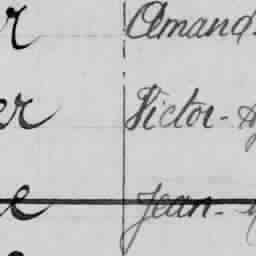 r Amand
er Victor-
e Jean-